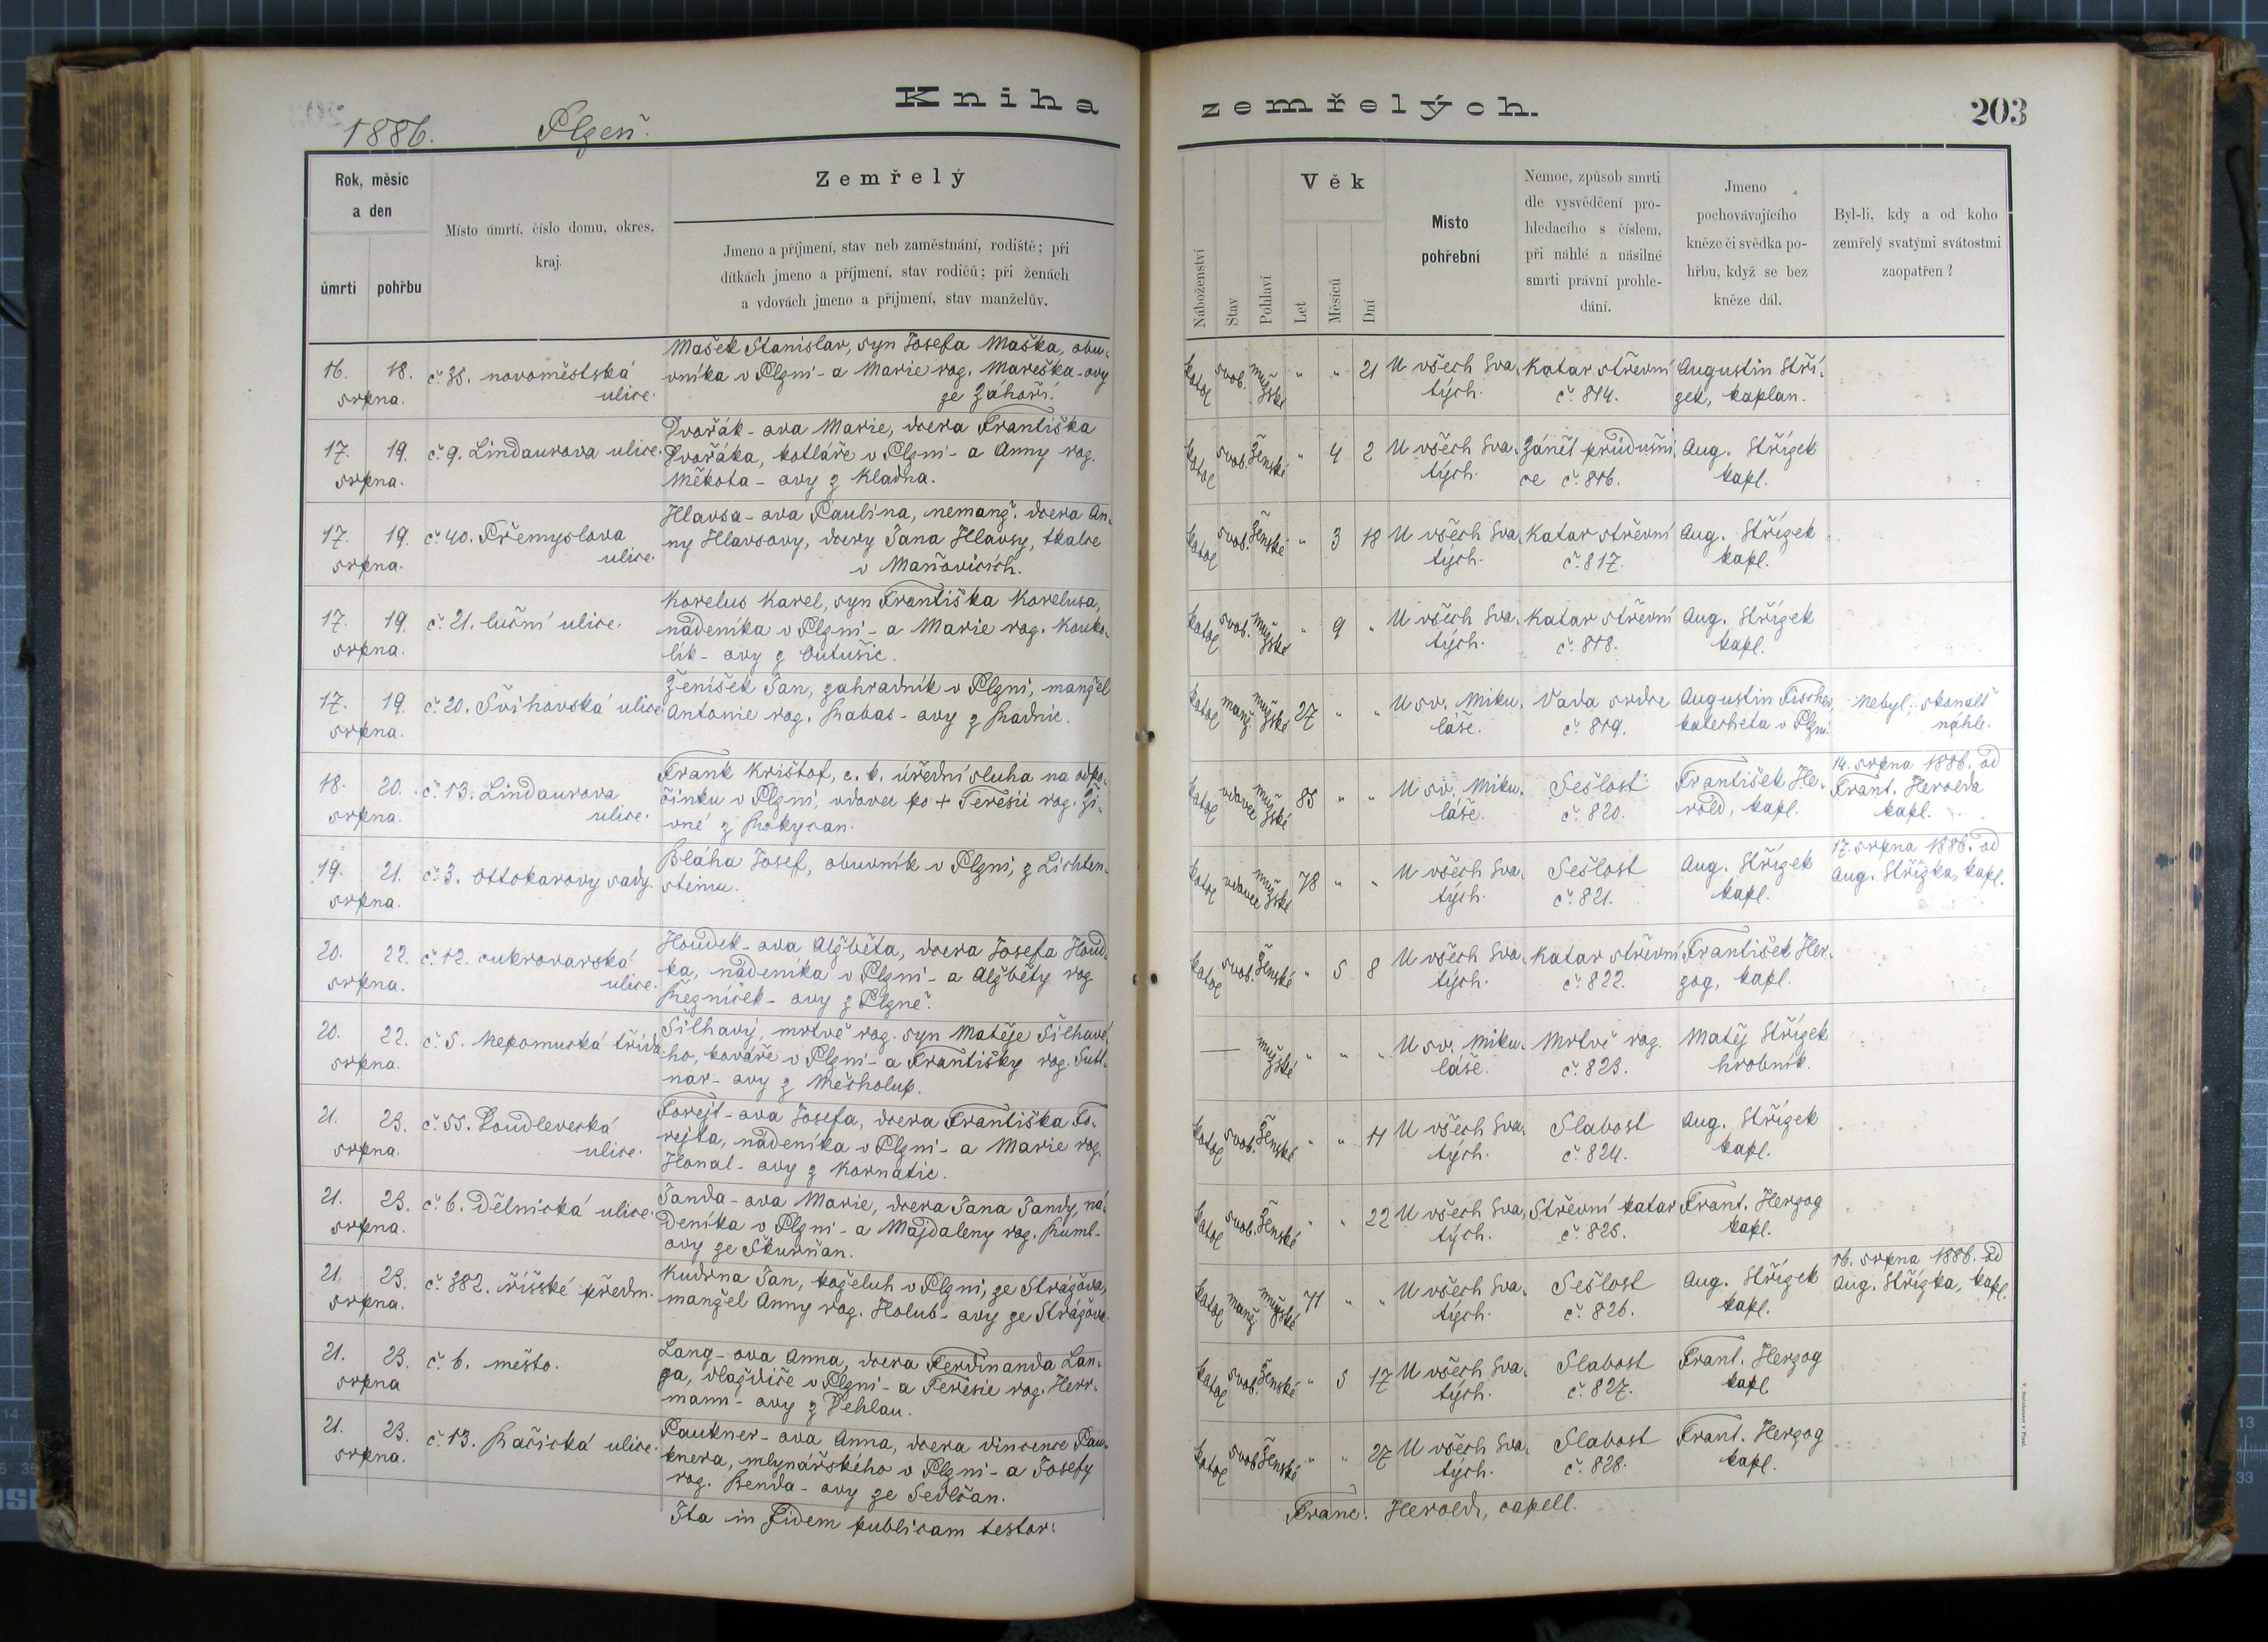 Kniha zemřelých.
203
1886. Plzeň.
Rok, měsíc
a den
úmrtí
pohřbu
Místo úmrtí, číslo domu, okres,
kraj.
Zemřelý
Jmeno a příjmení, stav neb zaměstnání, rodiště; při
dítkách jmeno a příjmení, stav rodičů; při ženách
a vdovách jmeno a příjmení, stav manželův.
Náboženství
Stav
Pohlaví
Věk
Let
Měsíců
Dní
Místo
pohřební
Nemoc, způsob smrti
dle vysvědčení pro-
hledacího s číslem,
při náhlé a násilné
smrti právní prohle-
dání.
Jmeno
pochovávajícího
kněze či svědka po-
hřbu, když se bez
kněze dál.
Byl-li, kdy a od koho
zemřelý svatými svátostmi
zaopatřen?
16. 18. č. 38. novoměstská
srpna. ulice.
Mašek Stanislav, syn Josefa Maška, obu-
vníka v Plzni - a Marie roz. Mareška-ovy
ze Záhoří.
katol svob. mužské " " 21 U všech Sva- Katar střevní Augustin Stří-
tých. č. 814. zek, kaplan.
17. 19. č. 9. Lindaurova ulice.
srpna.
Dvořák-ova Marie, dcera Františka
Dvořáka, kotláře v Plzni - a Anny roz.
Měkota-ovy z Kladna.
katol svob. Ženské " 4 2 U všech Sva- Zánět průdušni- Aug. Střízek
tých. ce č. 816. kapl.
17. 19. č. 40. Přemyslova
srpna. ulice.
Hlavsa-ova Paulina, nemanž. dcera An-
ny Hlavsovy, dcery Jana Hlavsy, tkalce
v Maňovicích.
katol svob. Ženské " 3 18 U všech Sva- Katar střevní Aug. Střízek
tých. č. 817. kapl.
17. 19. č. 21. luční ulice.
srpna.
Korelus Karel, syn Františka Korelusa,
nádeníka v Plzni - a Marie roz. Kouko-
lík-ovy z Outušic.
katol svob. mužské " 9 " U všech Sva- Katar střevní Aug. Střízek
tých. č. 818. kapl.
17. 19. č. 20. Švihovská ulice.
srpna.
Ženíšek Jan, zahradník v Plzni, manžel
Antonie roz. Rabas-ovy z Radnic.
katol manž. mužské 27 " " U sv. Miku- Vada srdce Augustin Fischer, Nebyl; skonalť
láše. č. 819. katecheta v Plzni. náhle.
18. 20. č. 13. Lindaurova
srpna. ulice.
Frank Krištof, c. k. úřední sluha na odpo-
činku v Plzni, vdovec po + Teresii roz. Ži-
vné z Rokycan.
katol vdovec mužské 85 " " U sv. Miku- Sešlost František He-
láše. č. 820. rold, kapl.
14. srpna 1886. od
Frant. Herolda
kapl.
19. 21. č. 3. Ottokarovy sady.
srpna.
Bláha Josef, obuvník v Plzni, z Lichten-
steinu.
katol vdovec mužské 78 " " U všech Sva- Sešlost Aug. Střízek
tých. č. 821. kapl.
17. srpna 1886. od
Aug. Střízka, kapl.
20. 22. č. 12. cukrovarská
srpna. ulice.
Houdek-ova Alžběta, dcera Josefa Houd-
ka, nádeníka v Plzni - a Alžběty roz
Řezníček-ovy z Plzně.
katol svob. Ženské " 5 8 U všech Sva- Katar střevní František Her-
tých. č. 822. zog, kapl.
20. 22. č. 5. Nepomucká třída
srpna.
Šilhavý, mrtvě roz. syn Matěje Šilhavé-
ho, kováře v Plzni - a Františky roz. Tutt-
nar-ovy z Měcholup.
— mužské " " " U sv. Miku- Mrtvě roz. Matěj Střízek
láše. č. 823. hrobník.
21. 23. č. 55. Doudlevecká
srpna. ulice.
Forejt-ova Josefa, dcera Františka Fo-
rejta, nádeníka v Plzni - a Marie roz.
Honal-ovy z Kornatic.
katol svob. Ženské " " 11 U všech Sva- Slabost Aug. Střízek
tých. č. 824. kapl.
21. 23. č. 6. Dělnická ulice.
srpna.
Janda-ova Marie, dcera Jana Jandy, ná-
deníka v Plzni - a Majdaleny roz. Ruml-
ovy ze Škurňan.
katol svob. Ženské " " 22 U všech Sva- Střevní katar Frant. Herzog
tých. č. 825. kapl.
21. 23. č. 382. říšské předm.
srpna.
Kudrna Jan, koželuh v Plzni, ze Strážova,
manžel Anny roz. Holub-ovy ze Strážova.
katol manž mužské 71 " " U všech Sva- Sešlost Aug. Střízek
tých. č. 826. kapl.
16. srpna 1886. od
Aug. Střízka, kapl.
21. 23. č. 6. město.
srpna
Lang-ova Anna, dcera Ferdinanda Lan-
ga, vlaždiče v Plzni - a Teresie roz. Herr-
mann-ovy z Dehlau.
katol svob. Ženské " 5 17 U všech Sva- Slabost Frant. Herzog
tých. č. 827. kapl
21. 23. č. 13. Račická ulice.
srpna.
Paukner-ova Anna, dcera Vincence Pau-
knera, mlynářského v Plzni - a Josefy
roz. Benda-ovy ze Sedlčan.
katol svob. Ženské " " 27 U všech Sva- Slabost Frant. Herzog
tých. č. 828. kapl.
Ita in Fidem publicam testor: Franc. Herold, capell.